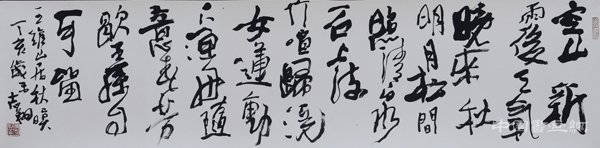 空山新
雨後天氣
晚来秋
明月松間
照清泉
石上流
竹喧歸浣
女蓮動
下漁舟隨
意春芳
歇王孫自
可留
王維山居秋暝
丁亥歲